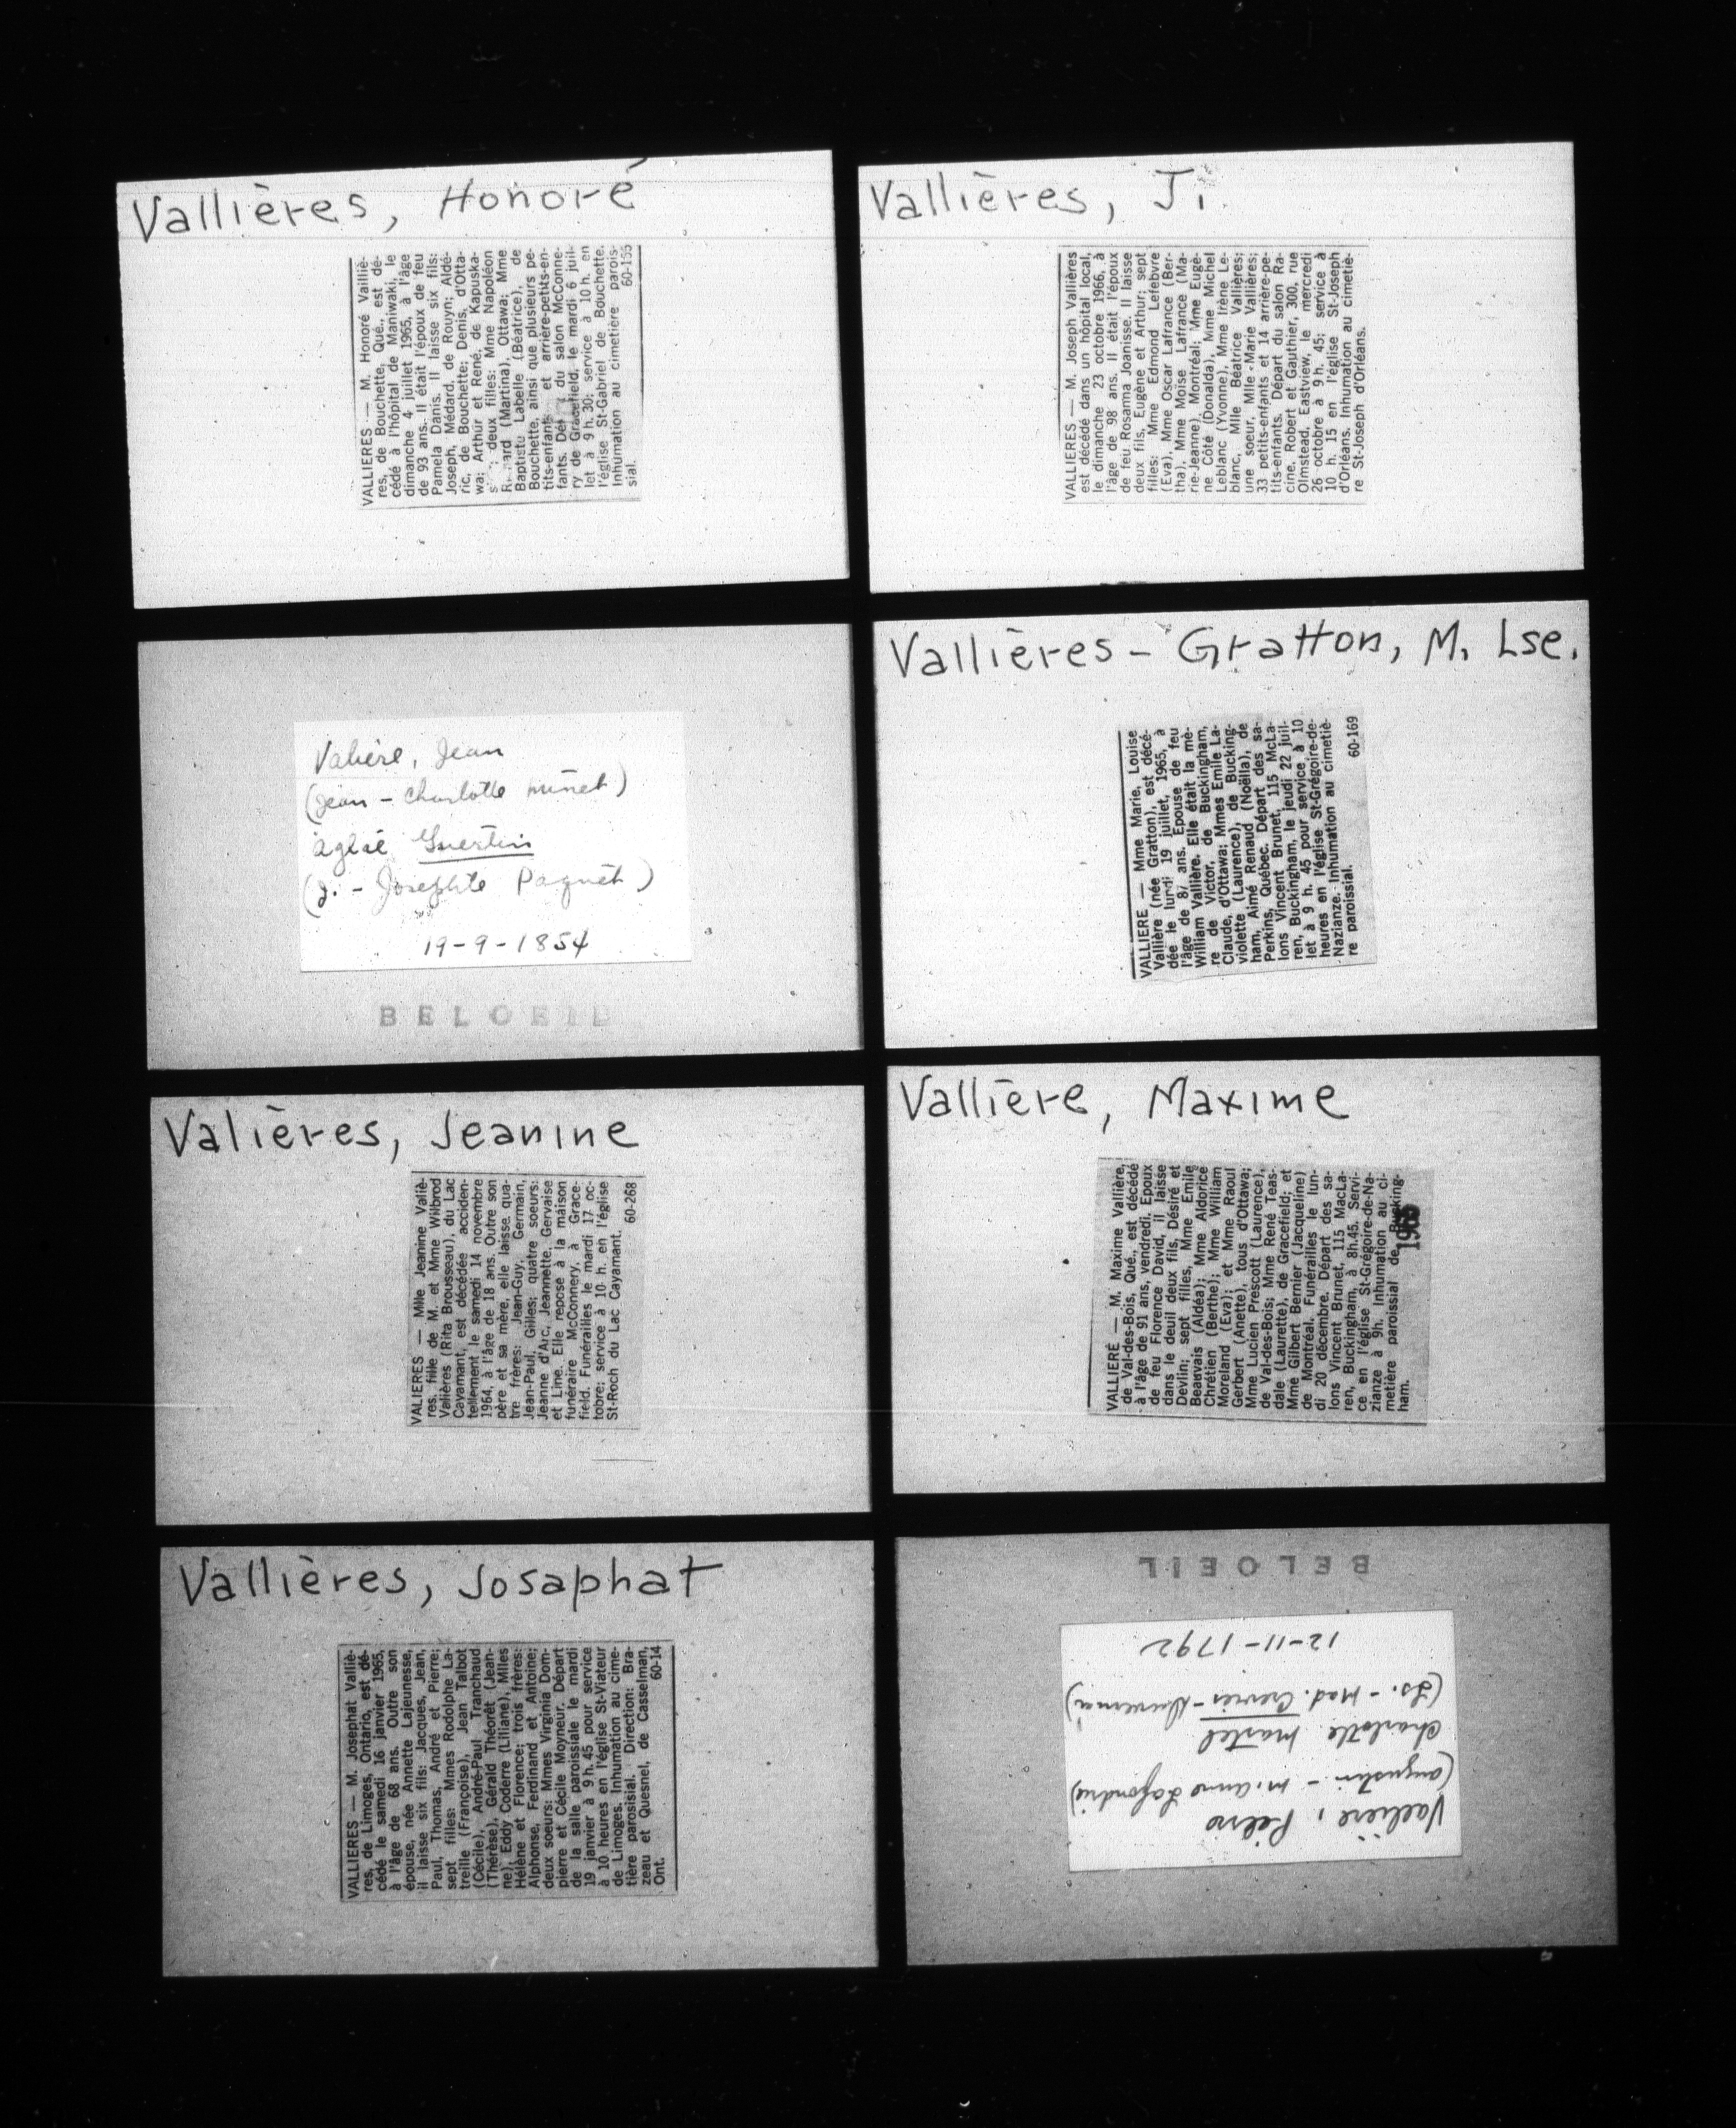 Vallières, Honoré
VALLIERES — M. Honoré Vailliè-
res, de Bouchette, Qué., est dé-
cédé à l'hôpital de Maniwaki, le
dimanche 4 juillet 1965, à l'âge
de 93 ans. Il était l'époux de feu
Pamela Danis. Il laisse six fils:
Joseph, Médard, de Rouyn; Aldé-
ric, de Bouchette; Denis, d'Otta-
wa; Arthur et René, de Kapuska-
deux filles: Mme Napoléon
(Martina), Ottawa; Mme
Baptiste Labelle (Béatrice), de
Bouchette, ainsi que plusieurs pe-
tits-enfants et arrière-petits-en-
fants. du salon McConne-
ry de Gracefield, le mardi 6 juil-
let à 9 h. 30; service à 10 h. en
l'église St-Gabriel de Bouchette.
Inhumation au cimetière parois-
sial. 60-155
Vallières, J.
VALLIERES — M. Joseph Vallières
est décédé dans un hôpital local,
le dimanche 23 octobre 1966, à
l'âge de 98 ans. Il était l'époux
de feu Rosanna Joanisse. Il laisse
deux fils, Eugène et Arthur; sept
filles: Mme Edmond Lefebvre
(Eva), Mme Oscar Lafrance (Ber-
tha), Mme Moise Lafrance (Ma-
rie-Jeanne), Montréal; Mme Eugè-
ne Côté (Donalda), Mme Michel
Leblanc (Yvonne), Mme Irène Le-
blanc, Mlle Béatrice Vallières;
une soeur, Mlle Marie Vallières;
33 petits-enfants et 14 arrière-pe-
tits-enfants. Départ du salon Ra-
cine, Robert et Gauthier, 300, rue
Olmstead, Eastview, le mercredi
26 octobre à 9 h. 45; service à
10 h. 15 en l'église St-Joseph
d'Orléans. Inhumation au cimetiè-
re St-Joseph d'Orléans.
Valière, Jean
(Jean - Charlotte minet)
aglaé Guertin
(J. - Josephte Paquet)
19-9-1854
BELOEIL
Vallières - Gratton, M. Lse.
VALLIERE — Mme Marie, Louise
Vallière (née Gratton), est décé-
dée le lundi 19 juillet, 1965, à
l'âge de 87 ans. Epouse de feu
William Vallière. Elle était la mè-
re de Victor, de Buckingham,
Claude, d'Ottawa; Mmes Emile La-
violette (Laurence), de Bucking-
ham, Aimé Renaud (Noëlla), de
Perkins, Québec. Départ des sa-
lons Vincent Brunet, 115 McLa-
ren, Buckingham, le jeudi 22 juil-
let à 9 h. 45 pour service à 10
heures en l'église St-Grégoire-de-
Nazianze. Inhumation au cimetiè-
re paroissial. 60-169
Valières, Jeanine
VALIERES — Mlle Jeanine Valiè-
res, fille de M. et Mme Wilbrod
Valières (Rita Brousseau), du Lac
Cayamant, est décédée acciden-
tellement le samedi 14 novembre
1964, à l'âge de 18 ans. Outre son
père et sa mère, elle laisse qua-
tre frères: Jean-Guy, Germain,
Jean-Paul, Gilles; quatre soeurs:
Jeanne d'Arc, Jeannette, Gervaise
et Line. Elle repose à la maison
funéraire McConnery, à Grace-
field. Funérailles le mardi 17 oc-
tobre; service à 10 h. en l'église
St-Roch du Lac Cayamant.
60-268
Vallière, Maxime
VALLIERE — M. Maxime Vallière,
de Val-des-Bois, Qué., est décédé
à l'âge de 91 ans, vendredi. Epoux
de feu Florence David, il laisse
dans le deuil deux fils, Désiré et
Devlin; sept filles, Mme Emile
Beauvais (Aldéa); Mme Aldorice
Chrétien (Berthe); Mme William
Moreland (Eva); et Mme Raoul
Gerbert (Anette), tous d'Ottawa;
Mme Lucien Prescott (Laurence),
de Val-des-Bois; Mme René Teas-
dale (Laurette), de Gracefield; et
Mme Gilbert Bernier (Jacqueline)
de Montréal. Funérailles le lun-
di 20 décembre. Départ des sa-
lons Vincent Brunet, 115 MacLa-
ren, Buckingham, à 8h.45. Servi-
ce en l'église St-Grégoire-de-Na-
zianze à 9h. Inhumation au ci-
metière paroissial de Bucking-
ham.
1965
Vallières, Josaphat
VALLIERES — M. Josephat Valliè-
res, de Limoges, Ontario, est dé-
cédé le samedi 16 janvier 1965,
à l'âge de 68 ans. Outre son
épouse, née Annette Lajeunesse,
il laisse six fils: Jacques, Jean,
Paul, Thomas, André et Pierre;
sept filles: Mmes Rodolphe La-
treille (Françoise), Jean Talbot
(Cécile), André-Paul Tranchaud
(Thérèse), Gérald Théorêt (Jean-
ne), Eddy Coderre (Liliane), Mlles
Hélène et Florence; trois frères:
Alphonse, Ferdinand et Antoine;
deux soeurs: Mmes Virginia Dom-
pierre et Cécile Moyneur. Départ
de la salle paroissiale le mardi
19 janvier à 9 h. 45 pour service
à 10 heures en l'église St-Viateur
de Limoges. Inhumation au cime-
tière parosisial. Direction: Bra-
zeau et Quesnel, de Casselman,
Ont. 60-14
Vallière, Pierre
(augustin - m. anne Lafondrie)
charlotte martel
(Is. - Mad. Crevier - Duvernay)
12-11-1792
BELOEIL